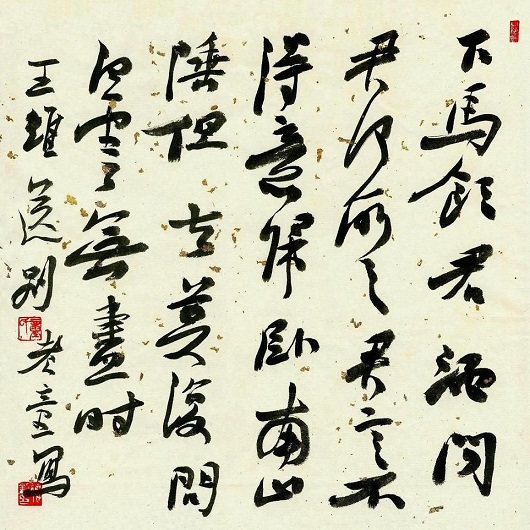 下馬飲君酒問
君何所之君言不
得意歸卧南山
陲但去莫復問
白雲無盡時
王維送別 老童寫